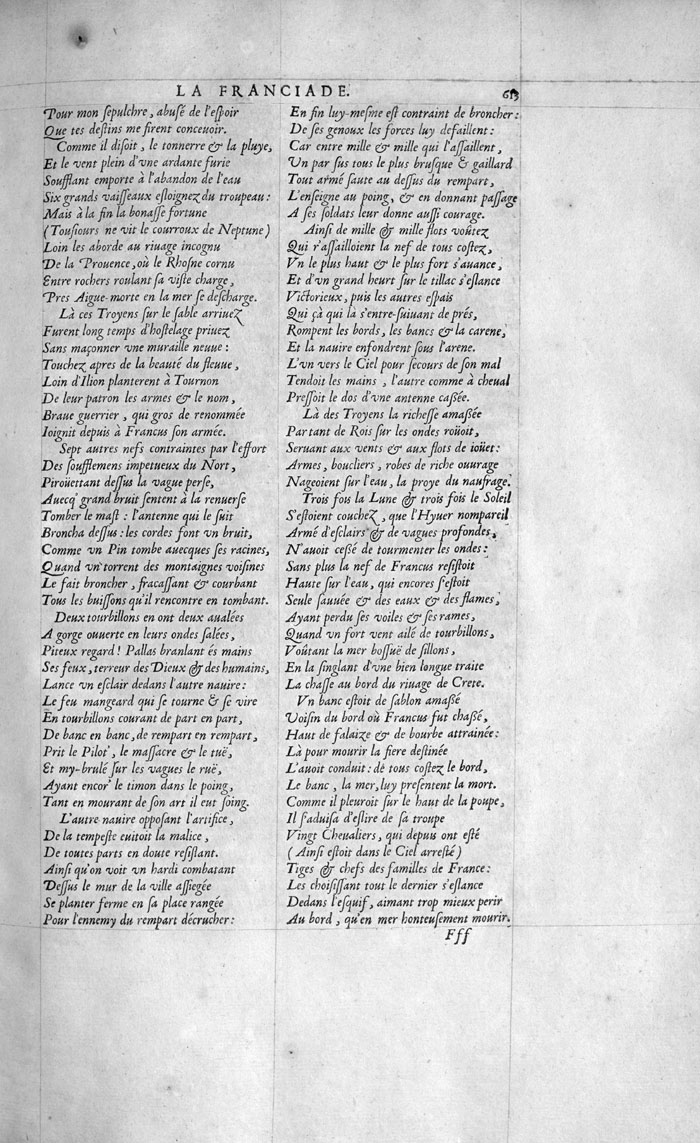 LA FRANCIADE. 613
Pour mon ſepulchre, abuſé de l'eſpoir
Que tes deſtins me firent conceuoir.
Comme il diſoit, le tonnerre & la pluye,
Et le vent plein d'vne ardante furie
Soufflant emporte à l'abandon de l'eau
Six grands vaiſſeaux eſloignez du troupeau:
Mais à la fin la bonaſſe fortune
(Touſiours ne vit le courroux de Neptune)
Loin les aborde au riuage incognu
De la Prouence, où le Rhoſne cornu
Entre rochers roulant ſa viſte charge,
Pres Aigue-morte en la mer ſe deſcharge.
Là ces Troyens ſur le ſable arriuez
Furent long temps d'hoſtelage priuez
Sans maçonner vne muraille neuue:
Touchez apres de la beauté du fleuue,
Loin d'Ilion planterent à Tournon
De leur patron les armes & le nom,
Braue guerrier, qui gros de renommée
Ioignit depuis à Francus ſon armée.
Sept autres nefs contraintes par l'effort
Des ſoufflemens impetueux du Nort,
Piroüettant deſſus la vague perſe,
Auecq' grand bruit ſentent à la renuerſe
Tomber le maſt: l'antenne qui le ſuit
Broncha deſſus: les cordes font vn bruit,
Comme vn Pin tombe auecques ſes racines,
Quand vn torrent des montaignes voiſines
Le fait broncher, fracaſſant & courbant
Tous les buiſſons qu'il rencontre en tombant.
Deux tourbillons en ont deux aualées
A gorge ouuerte en leurs ondes ſalées,
Piteux regard! Pallas branlant és mains
Ses feux, terreur des Dieux & des humains,
Lance vn eſclair dedans l'autre nauire:
Le feu mangeard qui ſe tourne & ſe vire
En tourbillons courant de part en part,
De banc en banc, de rempart en rempart,
Prit le Pilot', le maſſacre & le tuë,
Et my-brulé ſur les vagues le ruë,
Ayant encor' le timon dans le poing,
Tant en mourant de ſon art il eut ſoing.
L'autre nauire oppoſant l'artifice,
De la tempeſte euitoit la malice,
De toutes parts en doute reſiſtant.
Ainſi qu'on voit vn hardi combatant
Deſſus le mur de la ville aſſiegée
Se planter ferme en ſa place rangée
Pour l'ennemy du rempart décrucher:
En fin luy-meſme eſt contraint de broncher:
De ſes genoux les forces luy defaillent:
Car entre mille & mille qui l'aſſaillent,
Vn par ſus tous le plus bruſque & gaillard
Tout armé ſaute au deſſus du rempart,
L'enſeigne au poing, & en donnant paſſage
A ſes ſoldats leur donne auſſi courage.
Ainſi de mille & mille flots voûtez
Qui r'aſſailloient la nef de tous coſtez,
Vn le plus haut & le plus fort s'auance,
Et d'vn grand heurt ſur le tillac s'eſlance
Victorieux, puis les autres eſpais
Qui çà qui là s'entre-ſuiuant de prés,
Rompent les bords, les bancs & la carene,
Et la nauire enfondrent ſous l'arene.
L'vn vers le Ciel pour ſecours de ſon mal
Tendoit les mains, l'autre comme à cheual
Preſſoit le dos d'vne antenne caßée.
Là des Troyens la richeſſe amaßée
Par tant de Rois ſur les ondes roüoit,
Seruant aux vents & aux flots de ioüet:
Armes, boucliers, robes de riche ouurage
Nageoient ſur l'eau, la proye du naufrage.
Trois fois la Lune & trois fois le Soleil
S'eſtoient couchez, que l'Hyuer nompareil
Armé d'eſclairs & de vagues profondes,
N'auoit ceßé de tourmenter les ondes:
Sans plus la nef de Francus reſiſtoit
Haute ſur l'eau, qui encores s'eſtoit
Seule ſauuée & des eaux & des flames,
Ayant perdu ſes voiles & ſes rames,
Quand vn fort vent ailé de tourbillons,
Voûtant la mer boſſuë de ſillons,
En la ſinglant d'vne bien longue traite
La chaſſe au bord du riuage de Crete.
Vn banc eſtoit de ſablon amaßé
Voiſin du bord où Francus fut chaßé,
Haut de falaize & de bourbe attrainée:
Là pour mourir la fiere deſtinée
L'auoit conduit: de tous coſtez le bord,
Le banc, la mer, luy preſentent la mort.
Comme il pleuroit ſur le haut de la poupe,
Il ſ'aduiſa d'eſlire de ſa troupe
Vingt Cheualiers, qui depuis ont eſté
(Ainſi eſtoit dans le Ciel arreſté)
Tiges & chefs des familles de France:
Les choiſiſſant tout le dernier s'eſlance
Dedans l'eſquif, aimant trop mieux perir
Au bord, qu'en mer honteuſement mourir.
Fff